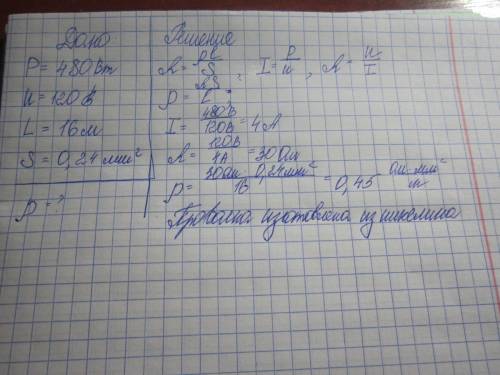 Дано
Решение
P = 480 Вт
U = 120 В
L = 16 м
S = 0,24 мм²
ρ = ?
R = ρL/S, I = P/U, R = U/I
ρ = RS/L
I = 480 В/120 В = 4 А
R = 120 В/4 А = 30 Ом
ρ = 30 Ом · 0,24 мм²/16 = 0,45 Ом·мм²/м
Проволка изготовлена из никелина